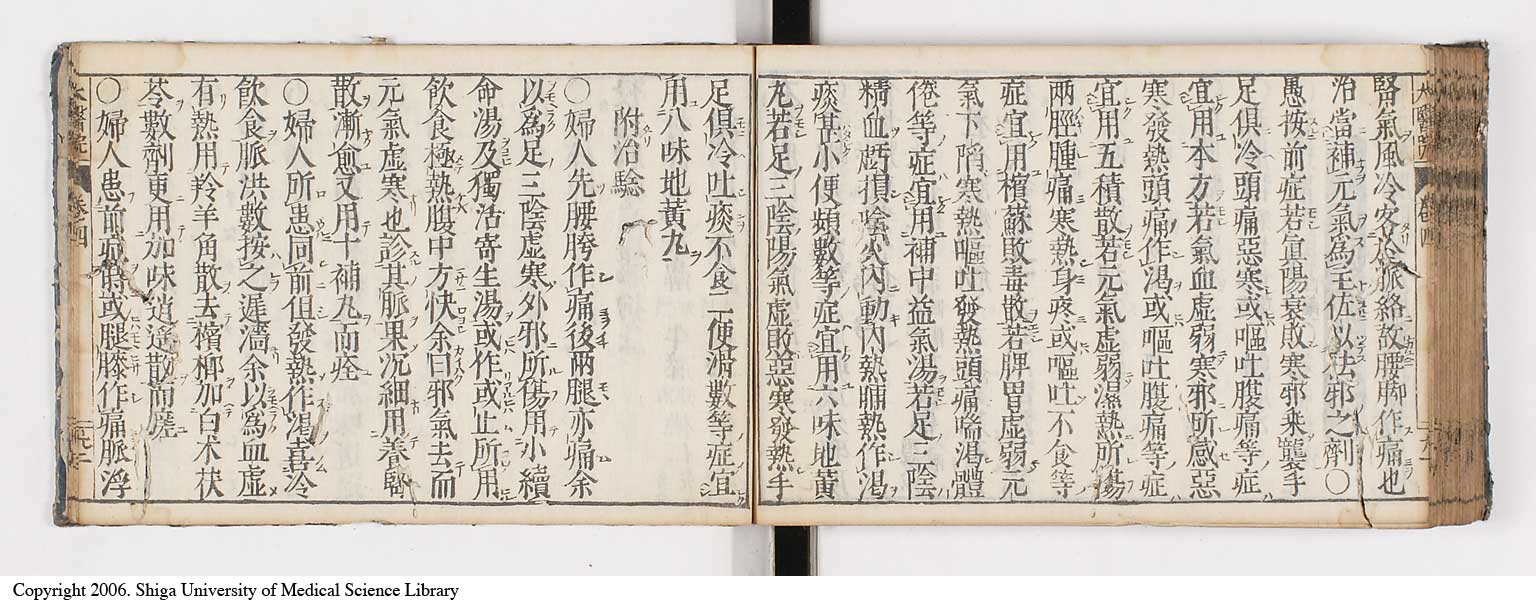 腎氣風冷客於脈絡故腰脚作痛也
治當補元氣爲主佐以法邪之劑○
愚按前症若眞陽衰敗寒邪乘襲手
足俱冷頭痛惡寒或嘔吐腹痛等症
宜用本方若氣血虛弱寒邪所感惡
寒發熱頭痛作渴或嘔吐腹痛等症
宜用五積散若元氣虛弱濕熱所傷
兩脛腫痛寒熱身疼或嘔吐不食等
症宜用檳蘇敗毒散若脾胃虛弱元
氣下陷寒熱嘔吐發熱頭痛喘渴體
倦等症宜用補中益氣湯若足三陰
精血虧損陰火內動內熱晡熱作渴
痰甚小便頻數等症宜用六味地黃
丸若足三陰陽氣虛敗惡寒發熱手
足俱冷吐痰不食二便滑數等症宜
用八味地黃丸
附治驗
○婦人先腰胯作痛後兩腿亦痛余
以爲足三陰虛寒外邪所傷用小續
命湯及獨活寄生湯或作或止所用
飲食極熱腹中方快余曰邪氣去而
元氣虛寒也診其脈果沉細用養腎
散漸愈又用十補丸而痊
○婦人所患同前但發熱作渴喜冷
飲食脈洪數按之遲濇余以爲血虛
有熱用羚羊角散去檳榔加白朮茯
苓數劑更用加味逍遙散而瘥
○婦人患前症時或腿膝作痛脈浮
Copyright 2006. Shiga University of Medical Science Library